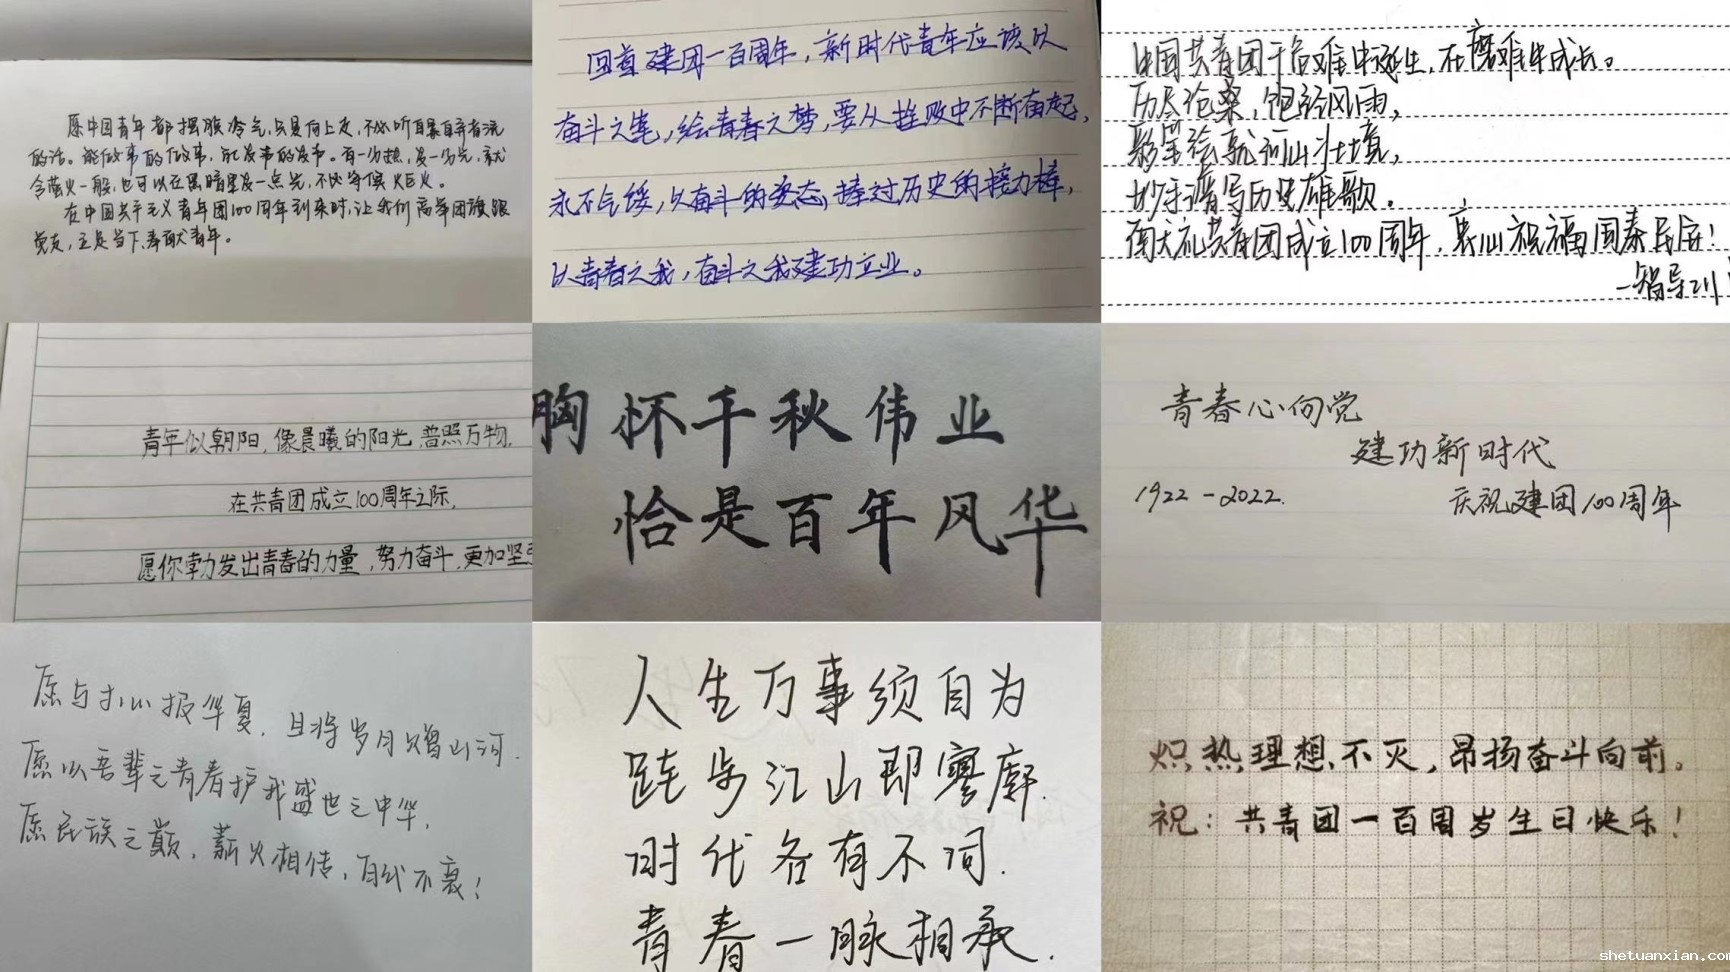 愿中国青年都摆脱冷气,只是向上走,不必听自暴自弃者流
的话。能做事的做事,能发声的发声。有一分热,发一分光,就
令萤火一般,也可以在黑暗里发一点光,不必等候炬火。
在中国共产主义青年团100周年到来时,让我们高举团旗跟
党走,立足当下,奉献青年。
回首建团一百周年,新时代青年应该以
奋斗之笔,绘青春之梦,要从挫败中不断奋起,
永不气馁,以奋斗的姿态,接过历史的接力棒,
以青春之我,奋斗之我建功立业。
中国共青团于危难中诞生,在磨难中成长。
历尽沧桑,饱经风雨,
绘就河山壮境,
谱写历史雄歌。
共青团成立100周年,衷心祝福国泰民安!
青年似朝阳,像晨曦的阳光,普照万物,
在共青团成立100周年之际,
愿你勃力发出青春的力量,努力奋斗,更加坚
胸怀千秋伟业
恰是百年风华
青春心向党
建功新时代
1922-2022.
庆祝建团100周年
愿与寸心报华夏,且将岁月赠山河.
愿以吾辈之青春护我盛世之中华,
愿民族之巅,薪火相传,百代不衰!
人生万事须自为
跬步江山即寥廓.
时代各有不同.
青春一脉相承.
炽热理想不灭,昂扬奋斗向前。
祝:共青团一百周岁生日快乐!
shetuanxian.com